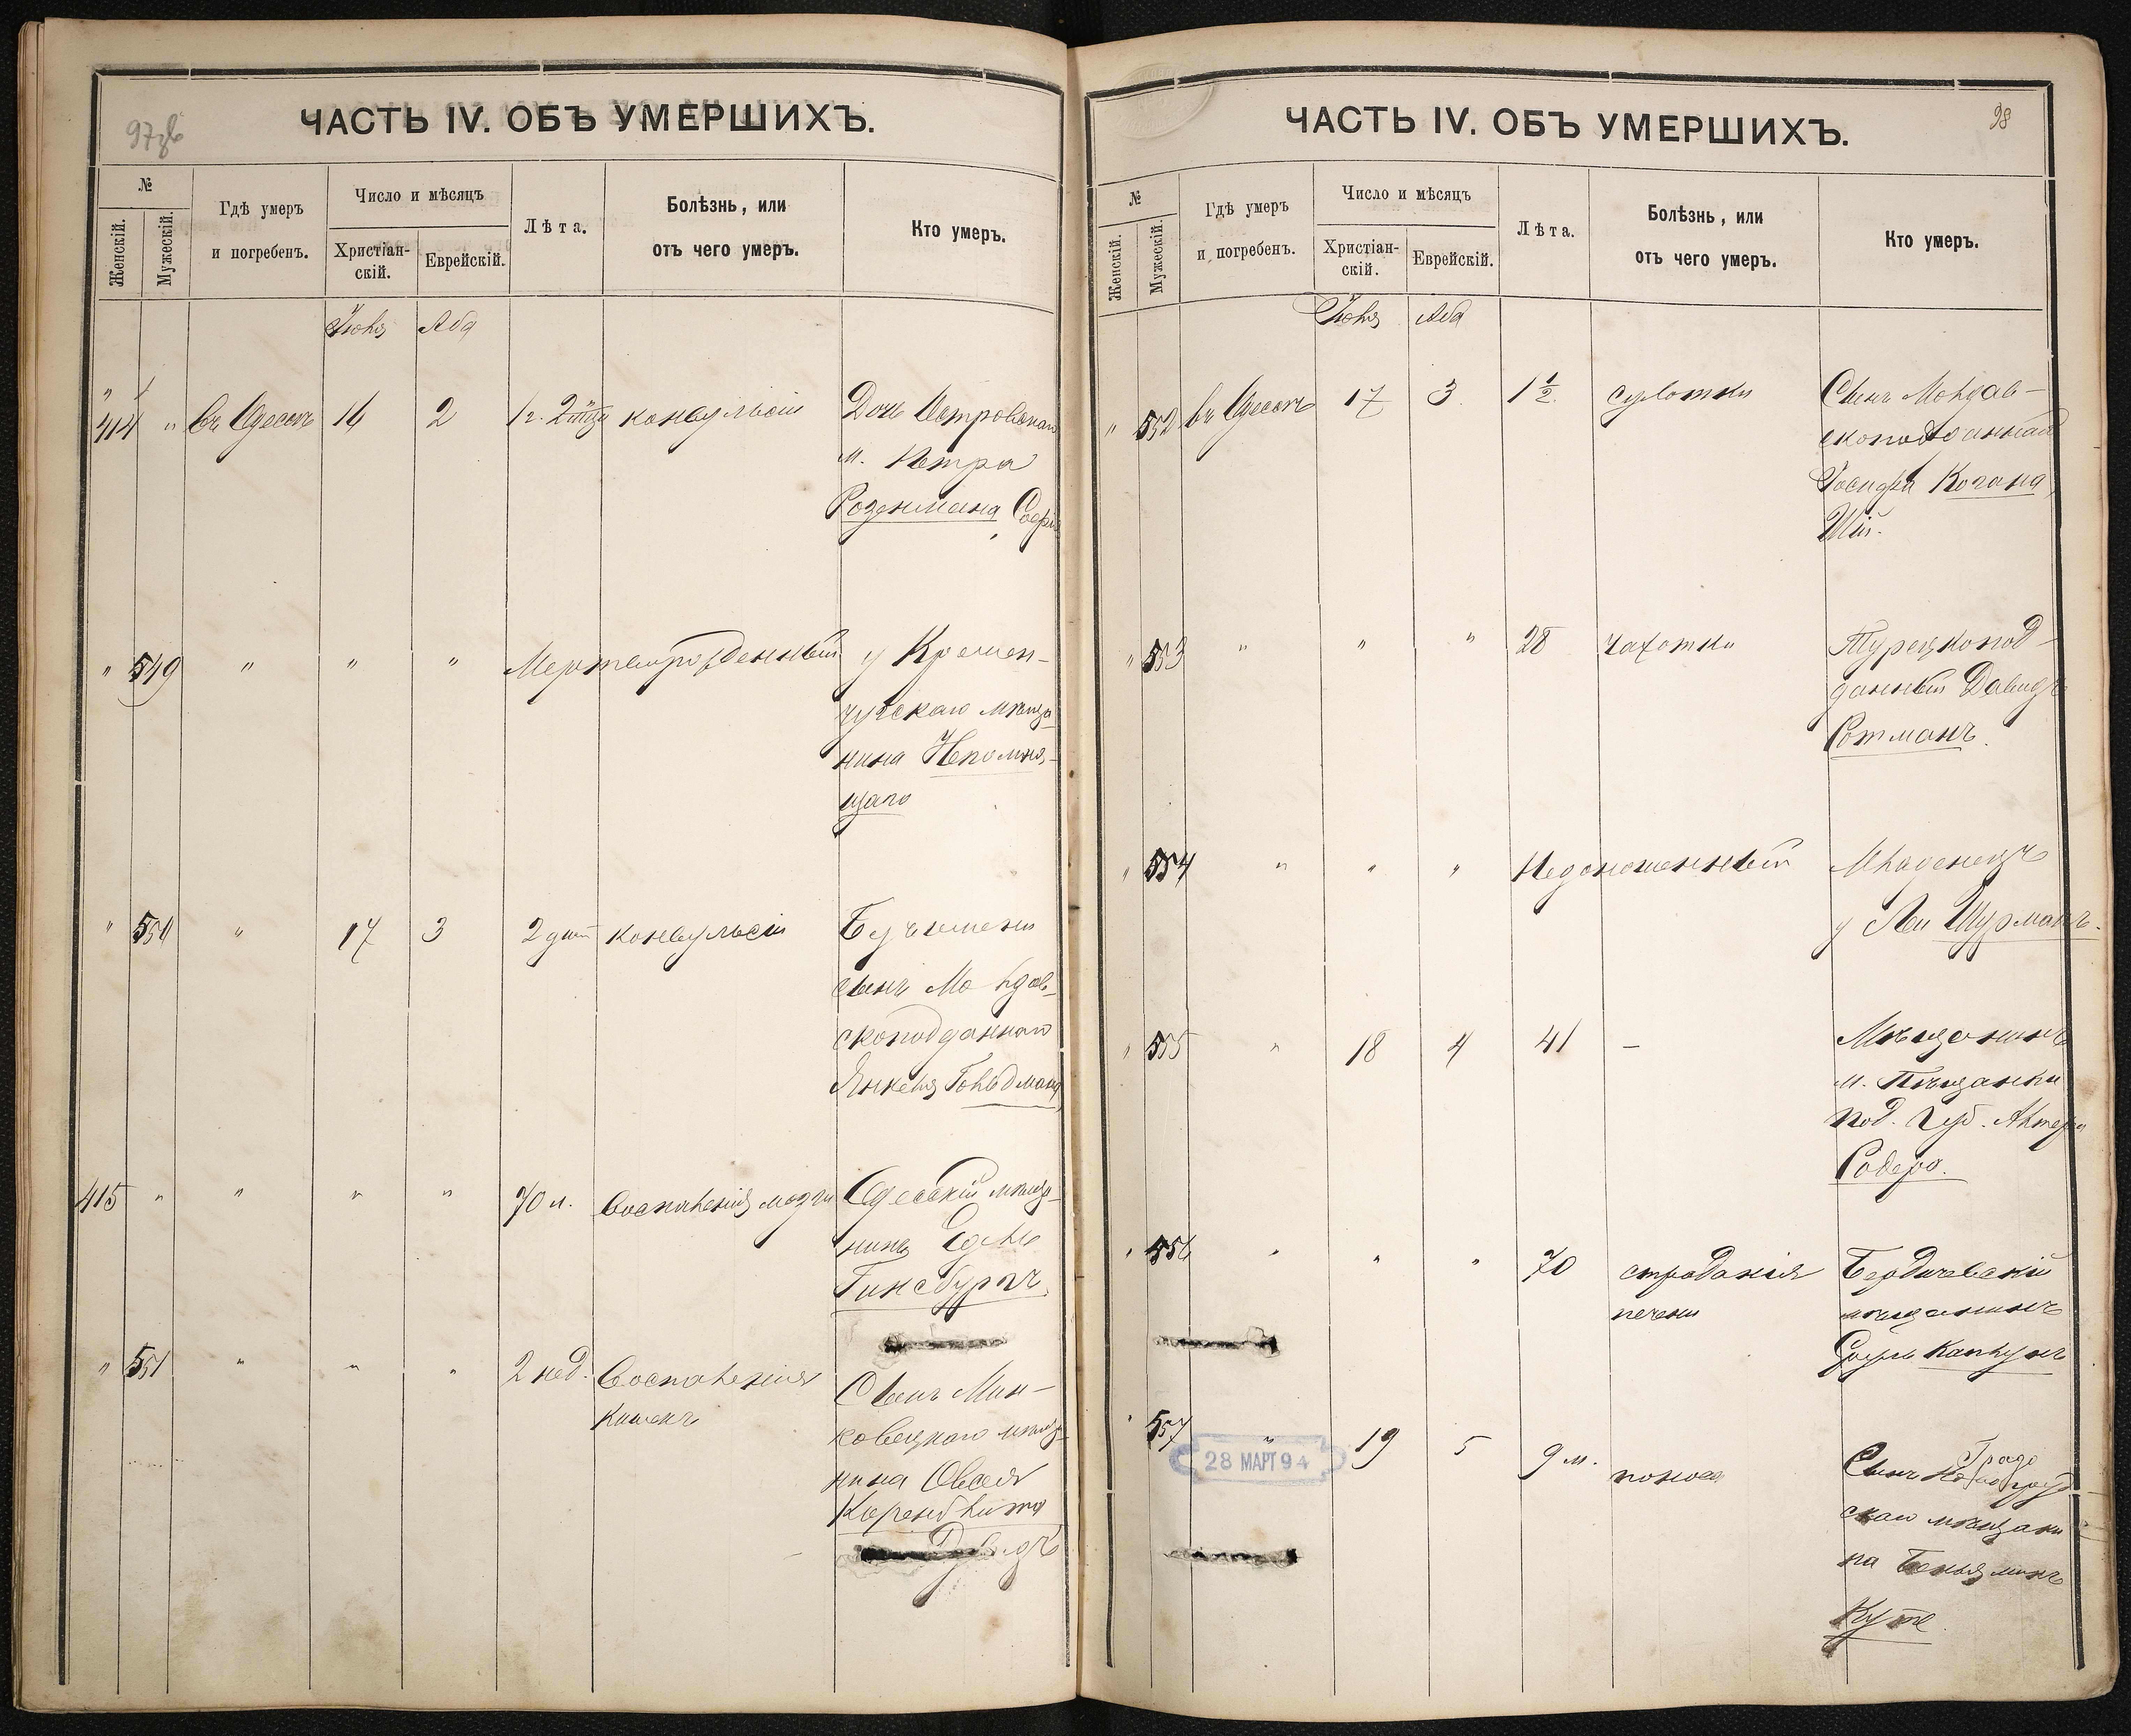 97об
ЧАСТЬ IV. ОБЪ УМЕРШИХЪ.
№
Женскій.
Мужескій.
Гдѣ умеръ
и погребенъ.
Число и мѣсяцъ
Христіан-
скій.
Еврейскій.
Лѣта.
Болѣзнь, или
отъ чего умеръ.
Кто умеръ.
Іюля Аба
414 " въ Одессѣ 16 2 конвульсіи Дочь Островскаго
м. Петра
Розенмана, Софія
" 549 " " " Мертворожденный у Кремен-
чугскаго мѣща-
нина Непомня-
щаго
" 550 " 17 3 2 дней конвульсіи Безъ имени
сынъ Молдав-
скоподданнаго
Янкеля Гольдмана
415 " " " " 70 л. Воспаленія мозги Одесскій мѣща-
нинъ Едель
Гинсбургъ
" 551 " " " 2 нед. Воспаленія
кишекъ
Сынъ Мин-
ковецкаго мѣща-
нина Овсея
Коренблита
Давидъ
98
ЧАСТЬ IV. ОБЪ УМЕРШИХЪ.
№
Женскій.
Мужескій.
Гдѣ умеръ
и погребенъ.
Число и мѣсяцъ
Христіан-
скій.
Еврейскій.
Лѣта.
Болѣзнь, или
отъ чего умеръ.
Кто умеръ.
Іюля Аба
" 552 въ Одессѣ 17 3 1 1/2 сухотки Сынъ Молдав-
скоподданнаго
Іосифа Когана,
" 553 " " " 28 чахотки Турецкопод-
данный Давидъ
Ротманъ.
" 554 " " " Недоношенный Младенецъ
у Леи Шурманъ.
" 555 " 18 4 41 — Мѣщанинъ
м. Пѣщанки
под. губ. Алтеръ
" 556 " " " 70 страданія
печени
Бердичевскій
мѣщанинъ
Сруль Каплунъ
" 557 " 19 5 9 м. поноса Сынъ
Градо
скаго мѣщани
на Беньяминъ
28 МАРТ 94